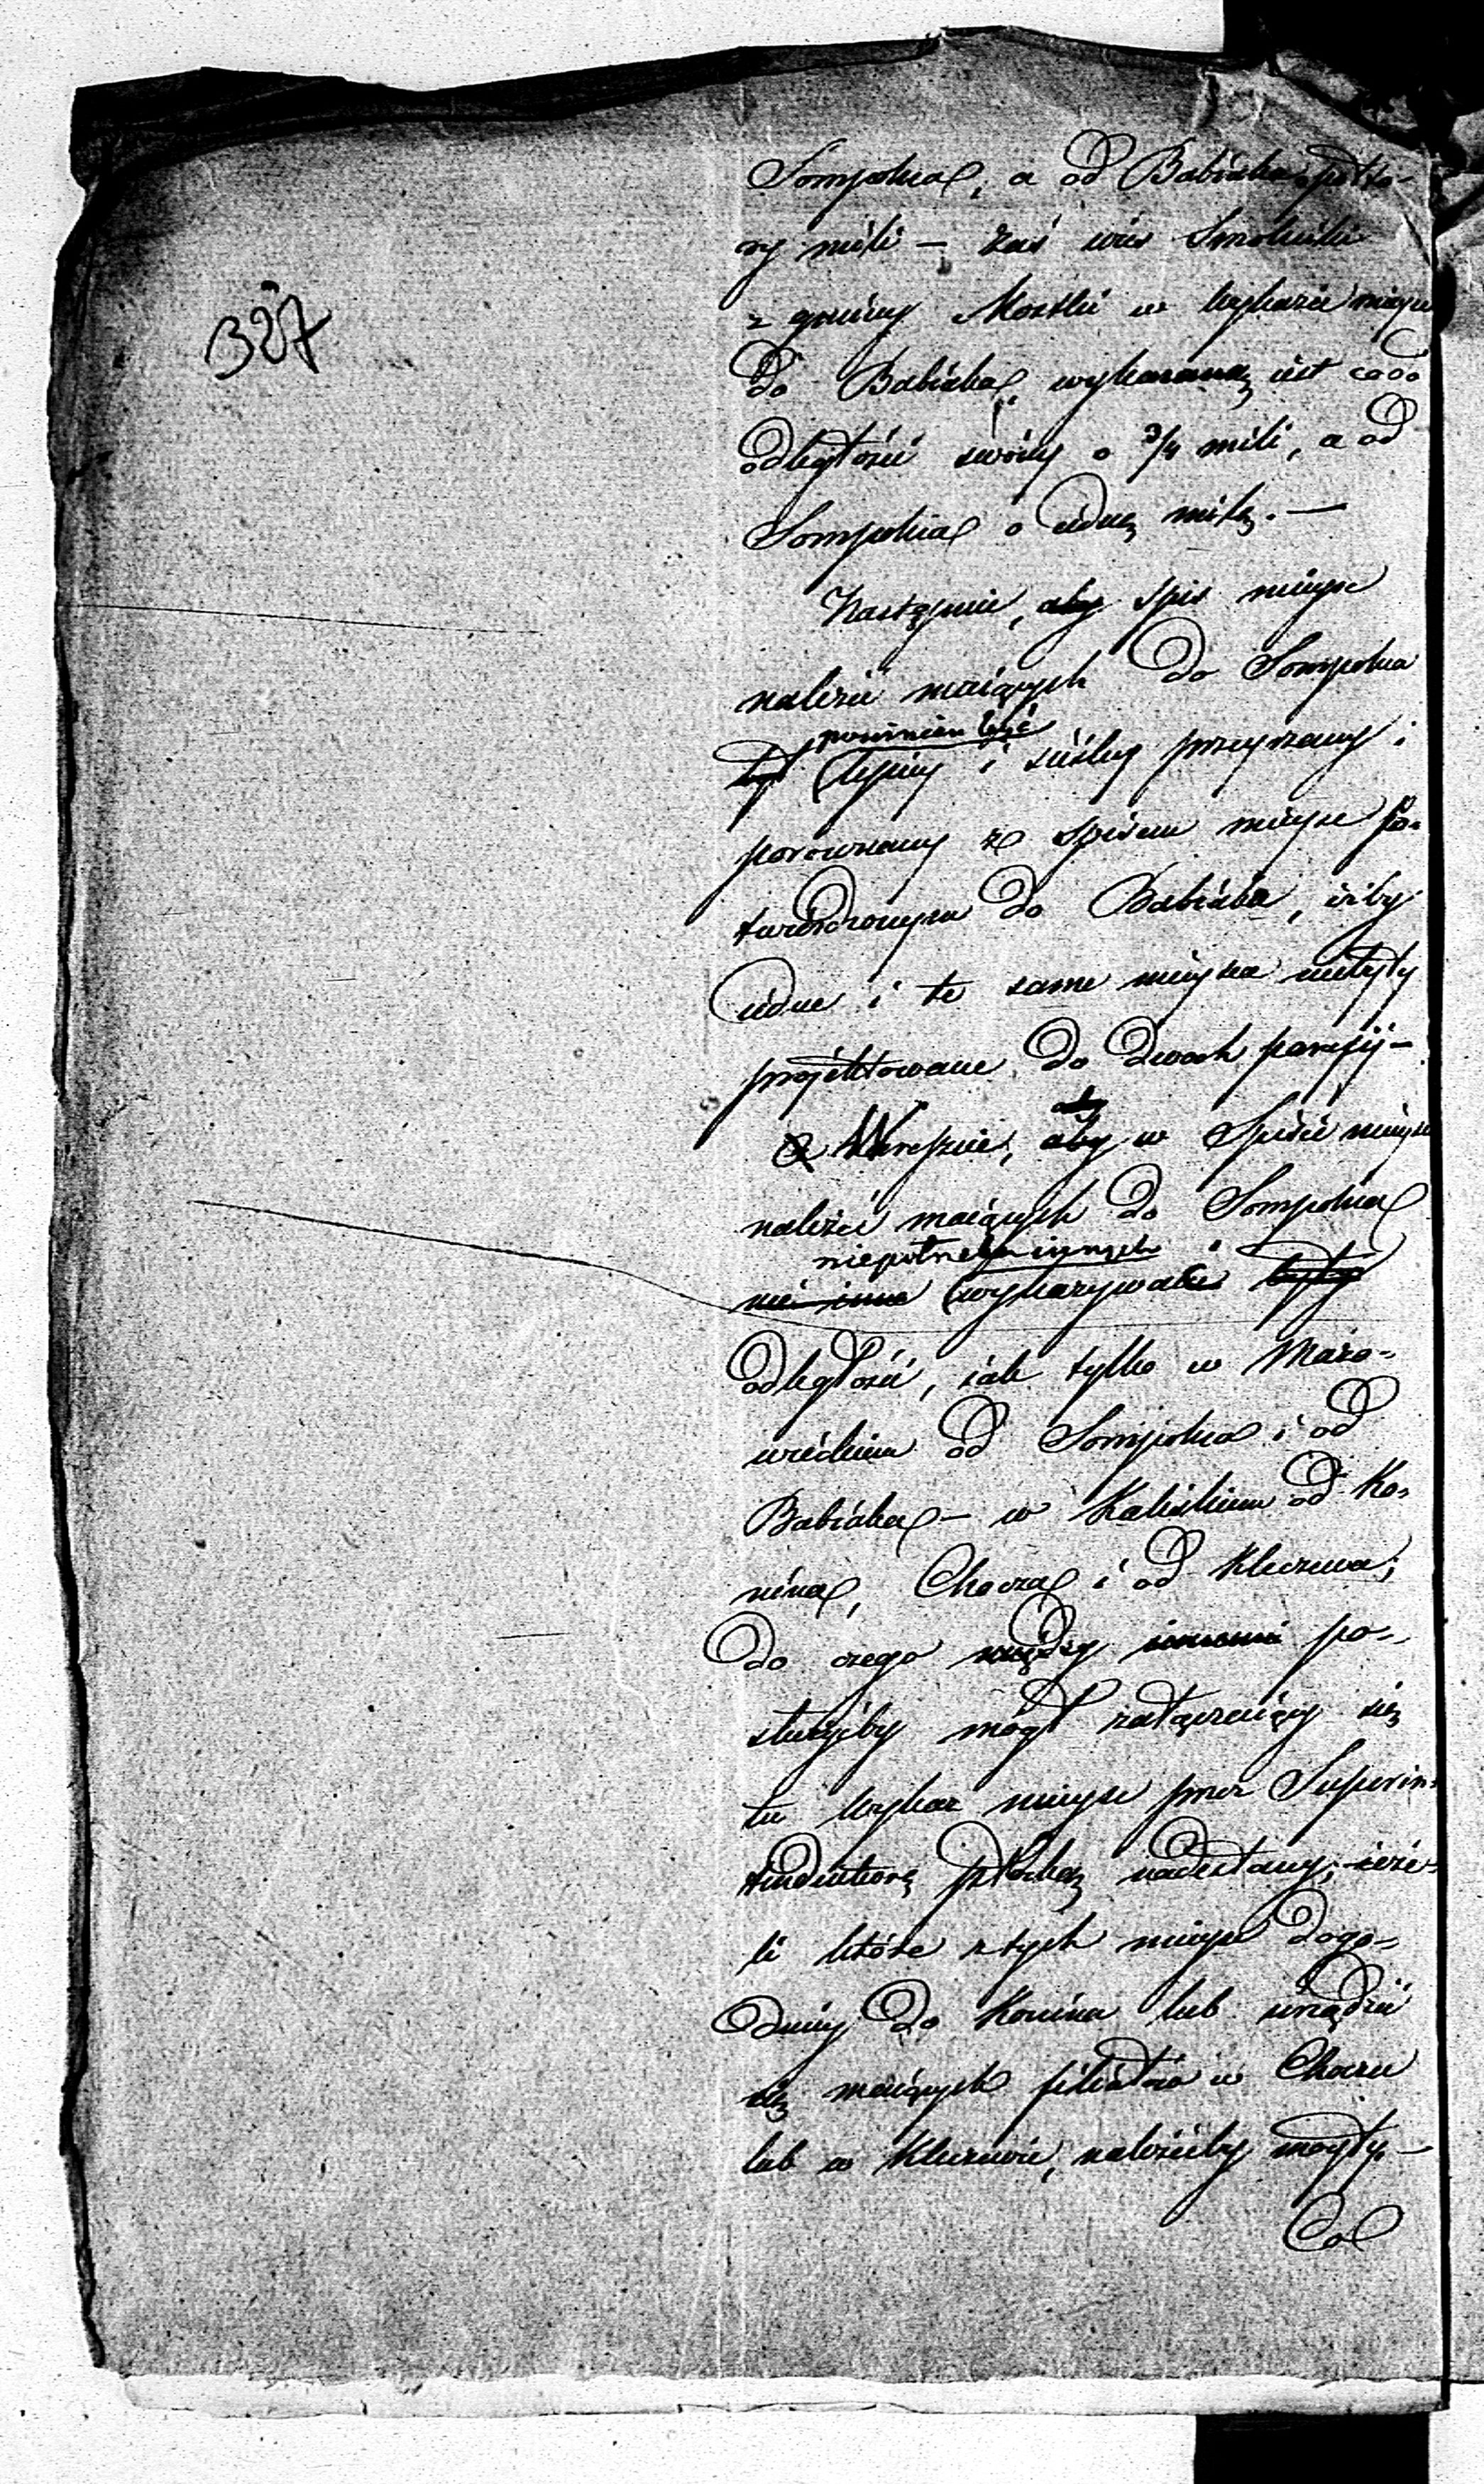 Sompolna, a od Babiaka półto-
ry mili — zaś wieś Smolniki
z gminy Mostki w wykazie mieysc
do Babiaka wykazaną iest co do
odległości swoiey o 3/4 mili, a od
Sompolna o iedną milę. —
327
Następnie, aby spis mieysc
należeć maiących do Sompolna
powinien być
był lepiey i ściśley przeyrzany i
porównany ze spisem mieysc po-
twierdzonym do Babiaka, iżby
iedne i te same mieysca niebyły
projektowane do dwóch parafij —
Wreszcie, aby w Spisie mieysc
należeć maiących do Sompolna
niepotrzeba innych
nie inne wykazywać były
odległości, iak tylko w Mazo-
wieckim od Sompolna i od
Babiaka — w Kaliskiem od Ko-
nina, Chocza i od Kleczewa;
do czego między innemi po-
służyćby mógł załączaiący się
tu wykaz mieysc przez Superin-
tendenturę Płocką nadesłany, ieże-
li które z tych mieysc dogo-
dniey do Konina lub urządzić
się maiących filiałów w Choczu
lub w Kleczewie, należećby mogły. —
Co